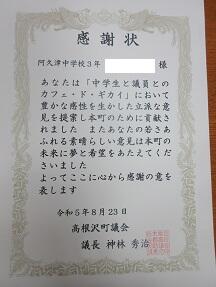 感謝状
阿久津中学校3年 様
あなたは「中学生と議員との
カフェ・ド・ギカイ」において
豊かな感性を生かした立派な意
見を提案し本町のために貢献さ
れました またあなたの若さあ
ふれる素晴らしい意見は本町の
未来に夢と希望をあたえてくだ
さいました
よってここに心から感謝の意を
表します
令和5年8月23日
高根沢町議会
議長 神林 秀治